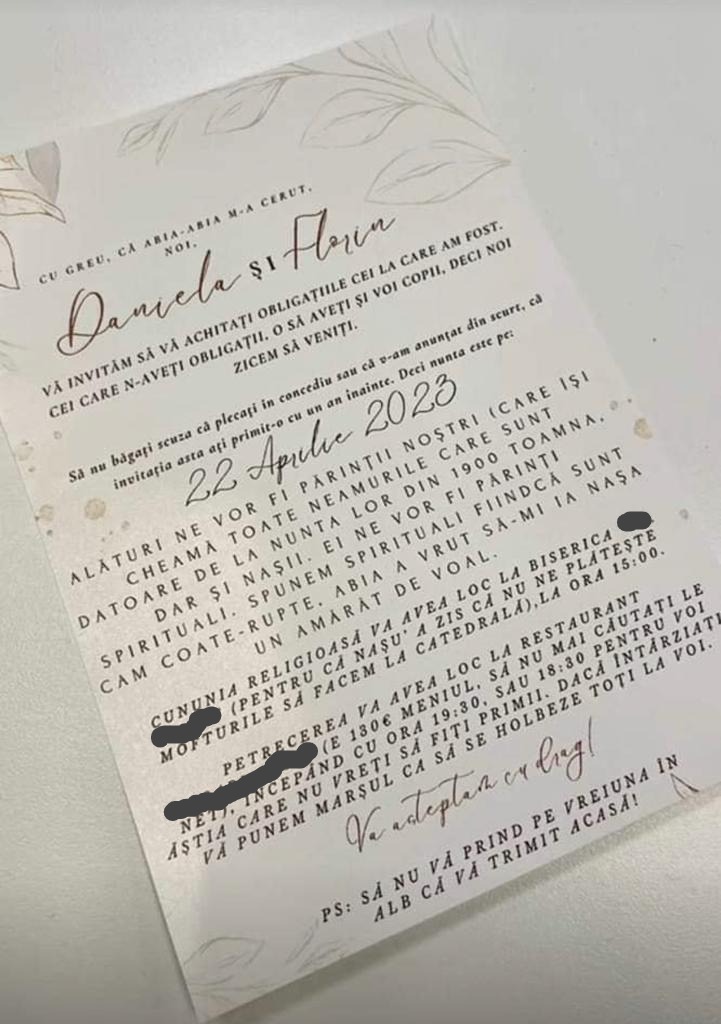 CU GREU, CĂ ABIA-ABIA M-A CERUT,
NOI,
Daniela ȘI Florin
VĂ INVITĂM SĂ VĂ ACHITAȚI OBLIGAȚIILE CEI LA CARE AM FOST.
CEI CARE N-AVEȚI OBLIGAȚII, O SĂ AVEȚI ȘI VOI COPII, DECI NOI
ZICEM SĂ VENIȚI.
Să nu băgați scuza că plecați în concediu sau că v-am anunțat din scurt, că
invitația asta ați primit-o cu un an înainte. Deci nunta este pe:
22 Aprilie 2023
ALĂTURI NE VOR FI PĂRINȚII NOȘTRI (CARE IȘI
CHEAMĂ TOATE NEAMURILE CARE SUNT
DATOARE DE LA NUNTA LOR DIN 1900 TOAMNA,
DAR ȘI NAȘII. EI NE VOR FI PĂRINȚI
SPIRITUALI. SPUNEM SPIRITUALI FIINDCĂ SUNT
CAM COATE-RUPTE. ABIA A VRUT SĂ-MI IA NAȘA
UN AMĂRÂT DE VOAL.
CUNUNIA RELIGIOASĂ VA AVEA LOC LA BISERICA
(PENTRU CĂ NAȘU' A ZIS CĂ NU NE PLĂTEȘTE
MOFTURILE SĂ FACEM LA CATEDRALĂ),LA ORA 15:00.
PETRECEREA VA AVEA LOC LA RESTAURANT
(E 130€ MENIUL, SĂ NU MAI CĂUTAȚI LE
NET), ÎNCEPÂND CU ORA 19:30, SAU 18:30 PENTRU VOI
ĂȘTIA CARE NU VREȚI SĂ FIȚI PRIMII. DACĂ ÎNTÂRZIAȚI
VĂ PUNEM MARȘUL CA SĂ SE HOLBEZE TOȚI LA VOI.
Va asteptam cu drag!
PS: SĂ NU VĂ PRIND PE VREIUNA ÎN
ALB CĂ VĂ TRIMIT ACASĂ!